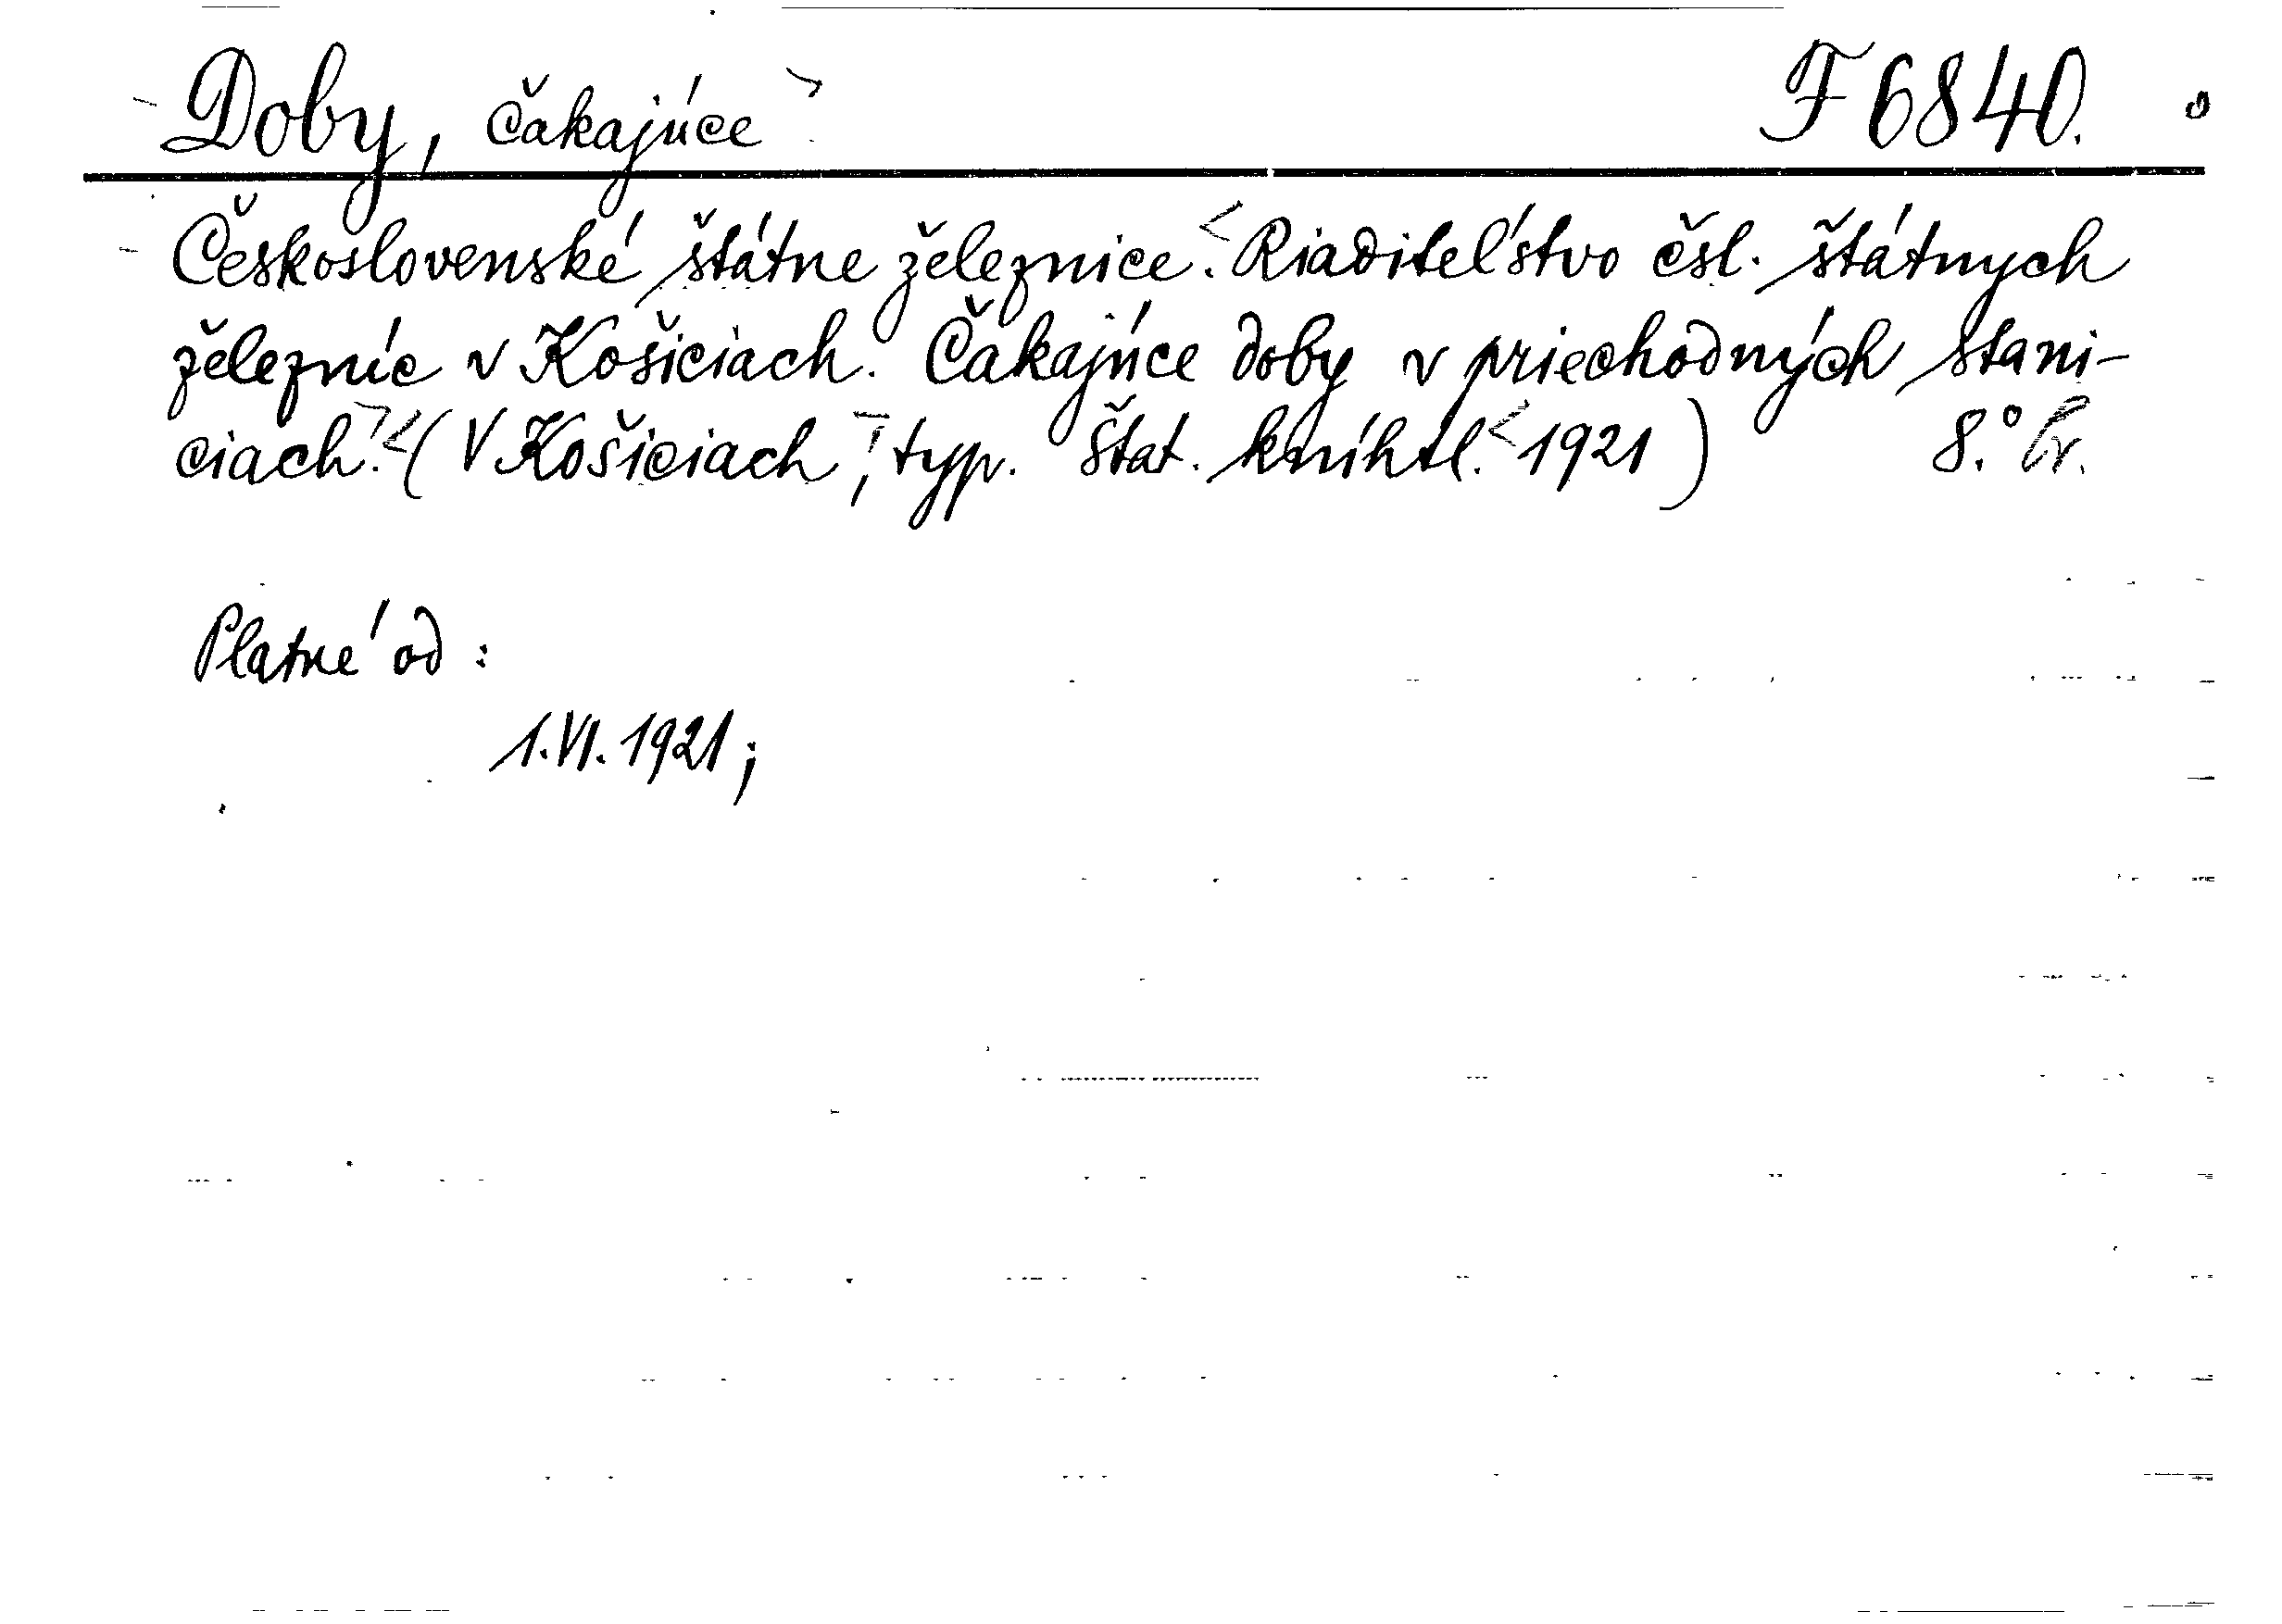 Doby, čakajúce F 6840.
Československé štátne železnice. Riaditeľstvo čsl. štátnych
železníc v Košiciach. Čakajúce doby v priechodných stani-
ciach. (V Košiciach, typ. Štat. kníhtl. 1921) 8.° br.
Platné od:
1.VI.1921;